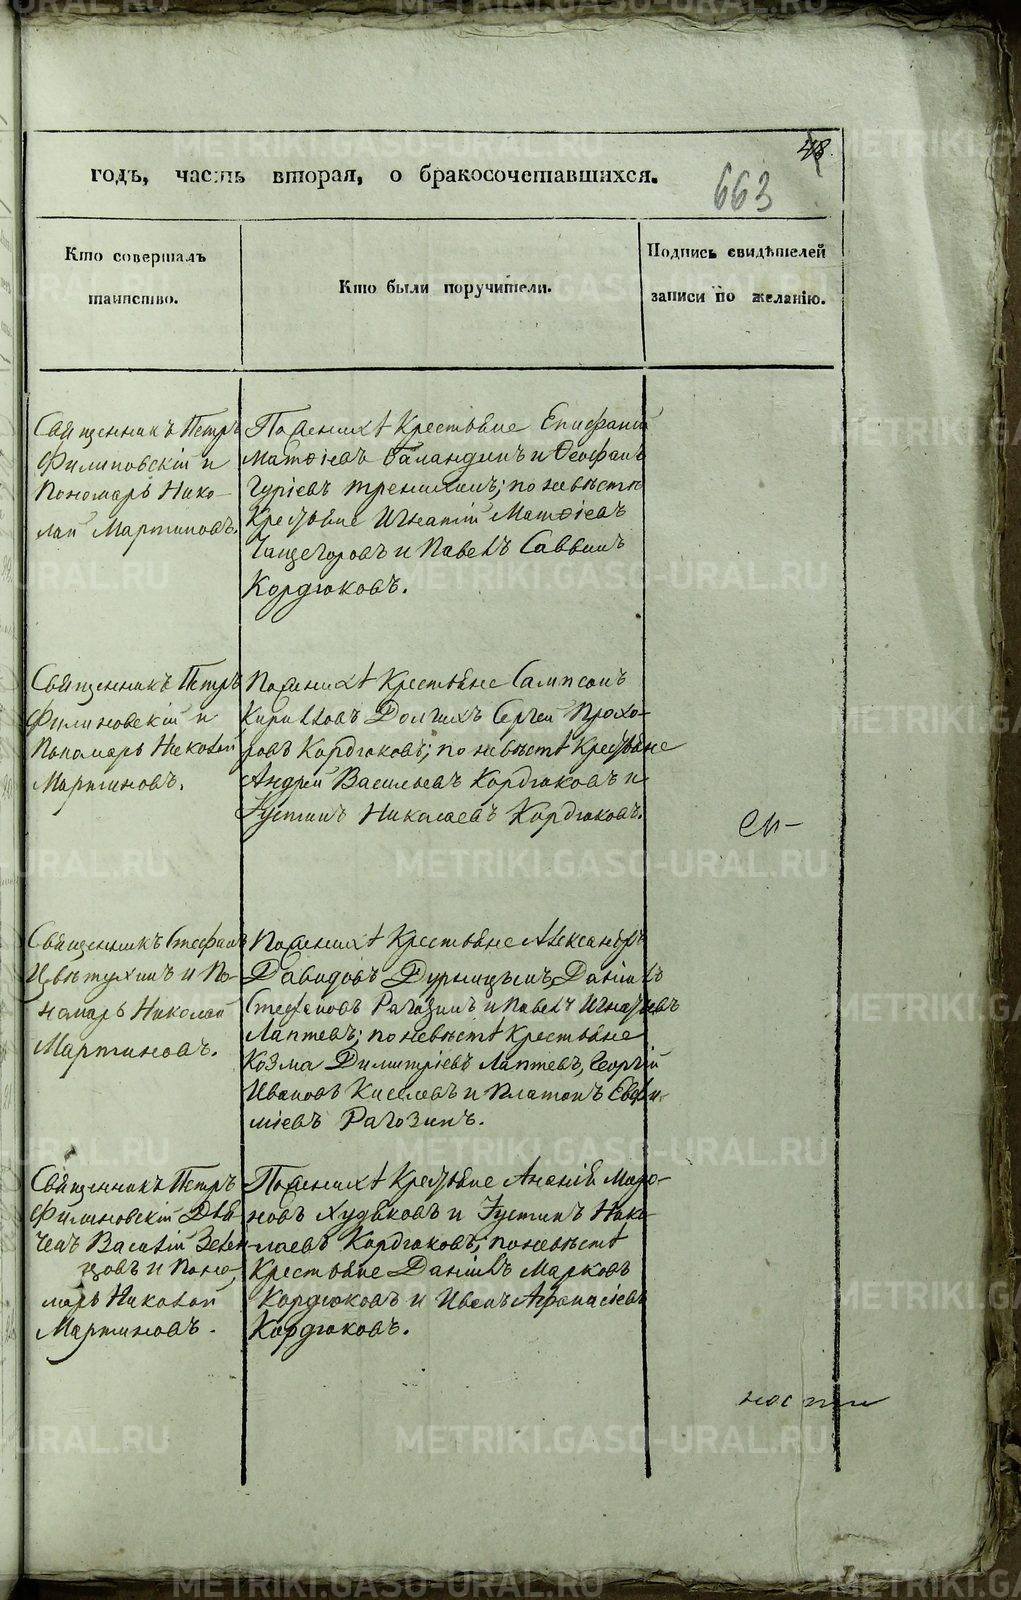 48.
годъ, часть вторая, о бракосочетавшихся.
663
Кто совершалъ
таинство.
Кто были поручители.
Подпись свидѣтелей
записи по желанію.
Священникъ Петръ
Филиповскій и
Пономарь Нико-
лай Мартиновъ.
По женихѣ Крестьяне Епифаній
Матѳіевъ Баландинъ и Ѳеофанъ
Гуріевъ Тренихинъ; по невѣстѣ
Крестьяне Игнатій Матѳіевъ
Чащегоровъ и Павелъ Саввинъ
Кордюковъ.
Священникъ Петръ
Филиповскій и
Пономарь Николай
Мартиновъ.
По женихѣ Крестьяне Сампсонъ
Кириловъ Долгихъ Сергей Прохо-
ровъ Кордюковъ; по невѣстѣ Крестьяне
Андрей Васильевъ Кордюковъ и
Іустинъ Николаевъ Кордюковъ.
Священникъ Стефанъ
Цвѣтухинъ и По-
номарь Николай
Мартиновъ.
По женихѣ Крестьяне Александръ
Давидовъ Дурницынъ, Даніилъ
Стефановъ Рагозинъ и Павелъ Игнатьевъ
Лаптевъ; по невѣстѣ Крестьяне
Козма Димитріевъ Лаптевъ, Георгій
Ивановъ Киселевъ и Платонъ Евфи-
міевъ Рагозинъ.
Священникъ Петръ
Филиповскій Дья-
чекъ Василій Зелен-
цовъ и Поно-
марь Николай
Мартиновъ.
По женихѣ Крестьяне Ананій Миро-
новъ Худяковъ и Іустинъ Нико-
лаевъ Кордюковъ; по невѣстѣ
Крестьяне Даніилъ Марковъ
Кордюковъ и Иванъ Афонасіевъ
Кордюковъ.
ности
METRIKI.GASO-URAL.RU